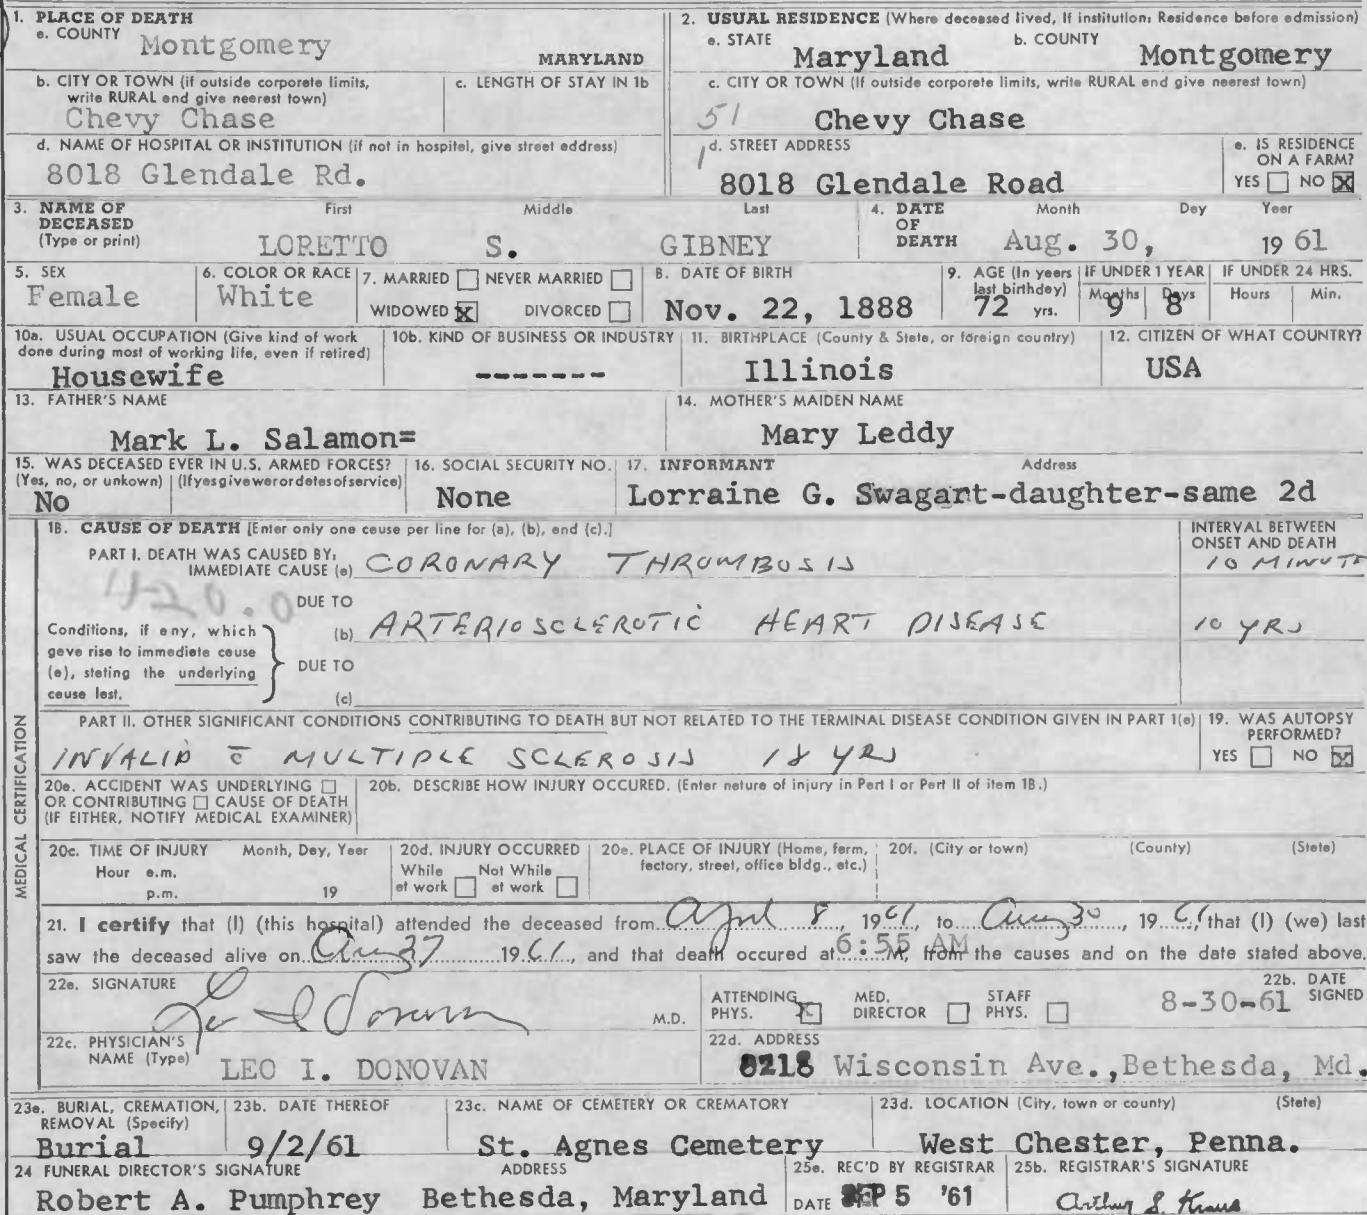 1. PLACE OF DEATH
a. COUNTY Montgomery MARYLAND
2. USUAL RESIDENCE (Where deceased lived, If institution: Residence before admission)
a. STATE Maryland b. COUNTY Montgomery
b. CITY OR TOWN (if outside corporate limits, write RURAL and give nearest town)
Chevy Chase
c. LENGTH OF STAY IN 1b
c. CITY OR TOWN (If outside corporate limits, write RURAL and give nearest town)
51 Chevy Chase
d. NAME OF HOSPITAL OR INSTITUTION (if not in hospital, give street address)
8018 Glendale Rd.
d. STREET ADDRESS
8018 Glendale Road
e. IS RESIDENCE ON A FARM?
YES NO X
3. NAME OF DECEASED (Type or print)
First Middle Last
LORETTO S. GIBNEY
4. DATE OF DEATH Month Day Year
Aug. 30, 19 61
5. SEX
Female
6. COLOR OR RACE
White
7. MARRIED NEVER MARRIED
WIDOWED X DIVORCED
8. DATE OF BIRTH
Nov. 22, 1888
9. AGE (In years last birthday)
72 yrs.
IF UNDER 1 YEAR
Months Days
9 8
IF UNDER 24 HRS.
Hours Min.
10a. USUAL OCCUPATION (Give kind of work done during most of working life, even if retired)
Housewife
10b. KIND OF BUSINESS OR INDUSTRY
-------
11. BIRTHPLACE (County & State, or foreign country)
Illinois
12. CITIZEN OF WHAT COUNTRY?
USA
13. FATHER'S NAME
Mark L. Salamon=
14. MOTHER'S MAIDEN NAME
Mary Leddy
15. WAS DECEASED EVER IN U.S. ARMED FORCES?
(Yes, no, or unkown) (If yes give war or dates of service)
No
16. SOCIAL SECURITY NO.
None
17. INFORMANT Address
Lorraine G. Swagart-daughter-same 2d
MEDICAL CERTIFICATION
18. CAUSE OF DEATH [Enter only one cause per line for (a), (b), and (c).]
INTERVAL BETWEEN ONSET AND DEATH
PART I. DEATH WAS CAUSED BY:
IMMEDIATE CAUSE (a) CORONARY THROMBOSIS 10 MINUTE
420.0
DUE TO
Conditions, if any, which gave rise to immediate cause (a), stating the underlying cause last.
(b) ARTERIOSCLEROTIC HEART DISEASE 10 YRS
DUE TO
(c)
PART II. OTHER SIGNIFICANT CONDITIONS CONTRIBUTING TO DEATH BUT NOT RELATED TO THE TERMINAL DISEASE CONDITION GIVEN IN PART 1(a)
INVALID c̄ MULTIPLE SCLEROSIS 18 YRS
19. WAS AUTOPSY PERFORMED?
YES NO X
20a. ACCIDENT WAS UNDERLYING
OR CONTRIBUTING CAUSE OF DEATH
(IF EITHER, NOTIFY MEDICAL EXAMINER)
20b. DESCRIBE HOW INJURY OCCURED. (Enter nature of injury in Part I or Part II of item 18.)
20c. TIME OF INJURY Month, Day, Year
Hour a.m.
p.m. 19
20d. INJURY OCCURRED
While at work Not While at work
20e. PLACE OF INJURY (Home, farm, factory, street, office bldg., etc.)
20f. (City or town) (County) (State)
21. I certify that (I) (this hospital) attended the deceased from April 8, 1961, to Aug 30, 1961, that (I) (we) last
saw the deceased alive on Aug 27 1961, and that death occured at 6:55 AM M, from the causes and on the date stated above.
22a. SIGNATURE
Leo I Donovan M.D.
ATTENDING PHYS. X MED. DIRECTOR STAFF PHYS.
22b. DATE SIGNED
8-30-61
22c. PHYSICIAN'S NAME (Type)
LEO I. DONOVAN
22d. ADDRESS
8218 Wisconsin Ave., Bethesda, Md.
23a. BURIAL, CREMATION, REMOVAL (Specify)
Burial
23b. DATE THEREOF
9/2/61
23c. NAME OF CEMETERY OR CREMATORY
St. Agnes Cemetery
23d. LOCATION (City, town or county) (State)
West Chester, Penna.
24 FUNERAL DIRECTOR'S SIGNATURE ADDRESS
Robert A. Pumphrey Bethesda, Maryland
25a. REC'D BY REGISTRAR
DATE SEP 5 '61
25b. REGISTRAR'S SIGNATURE
Arthur S. Kraus